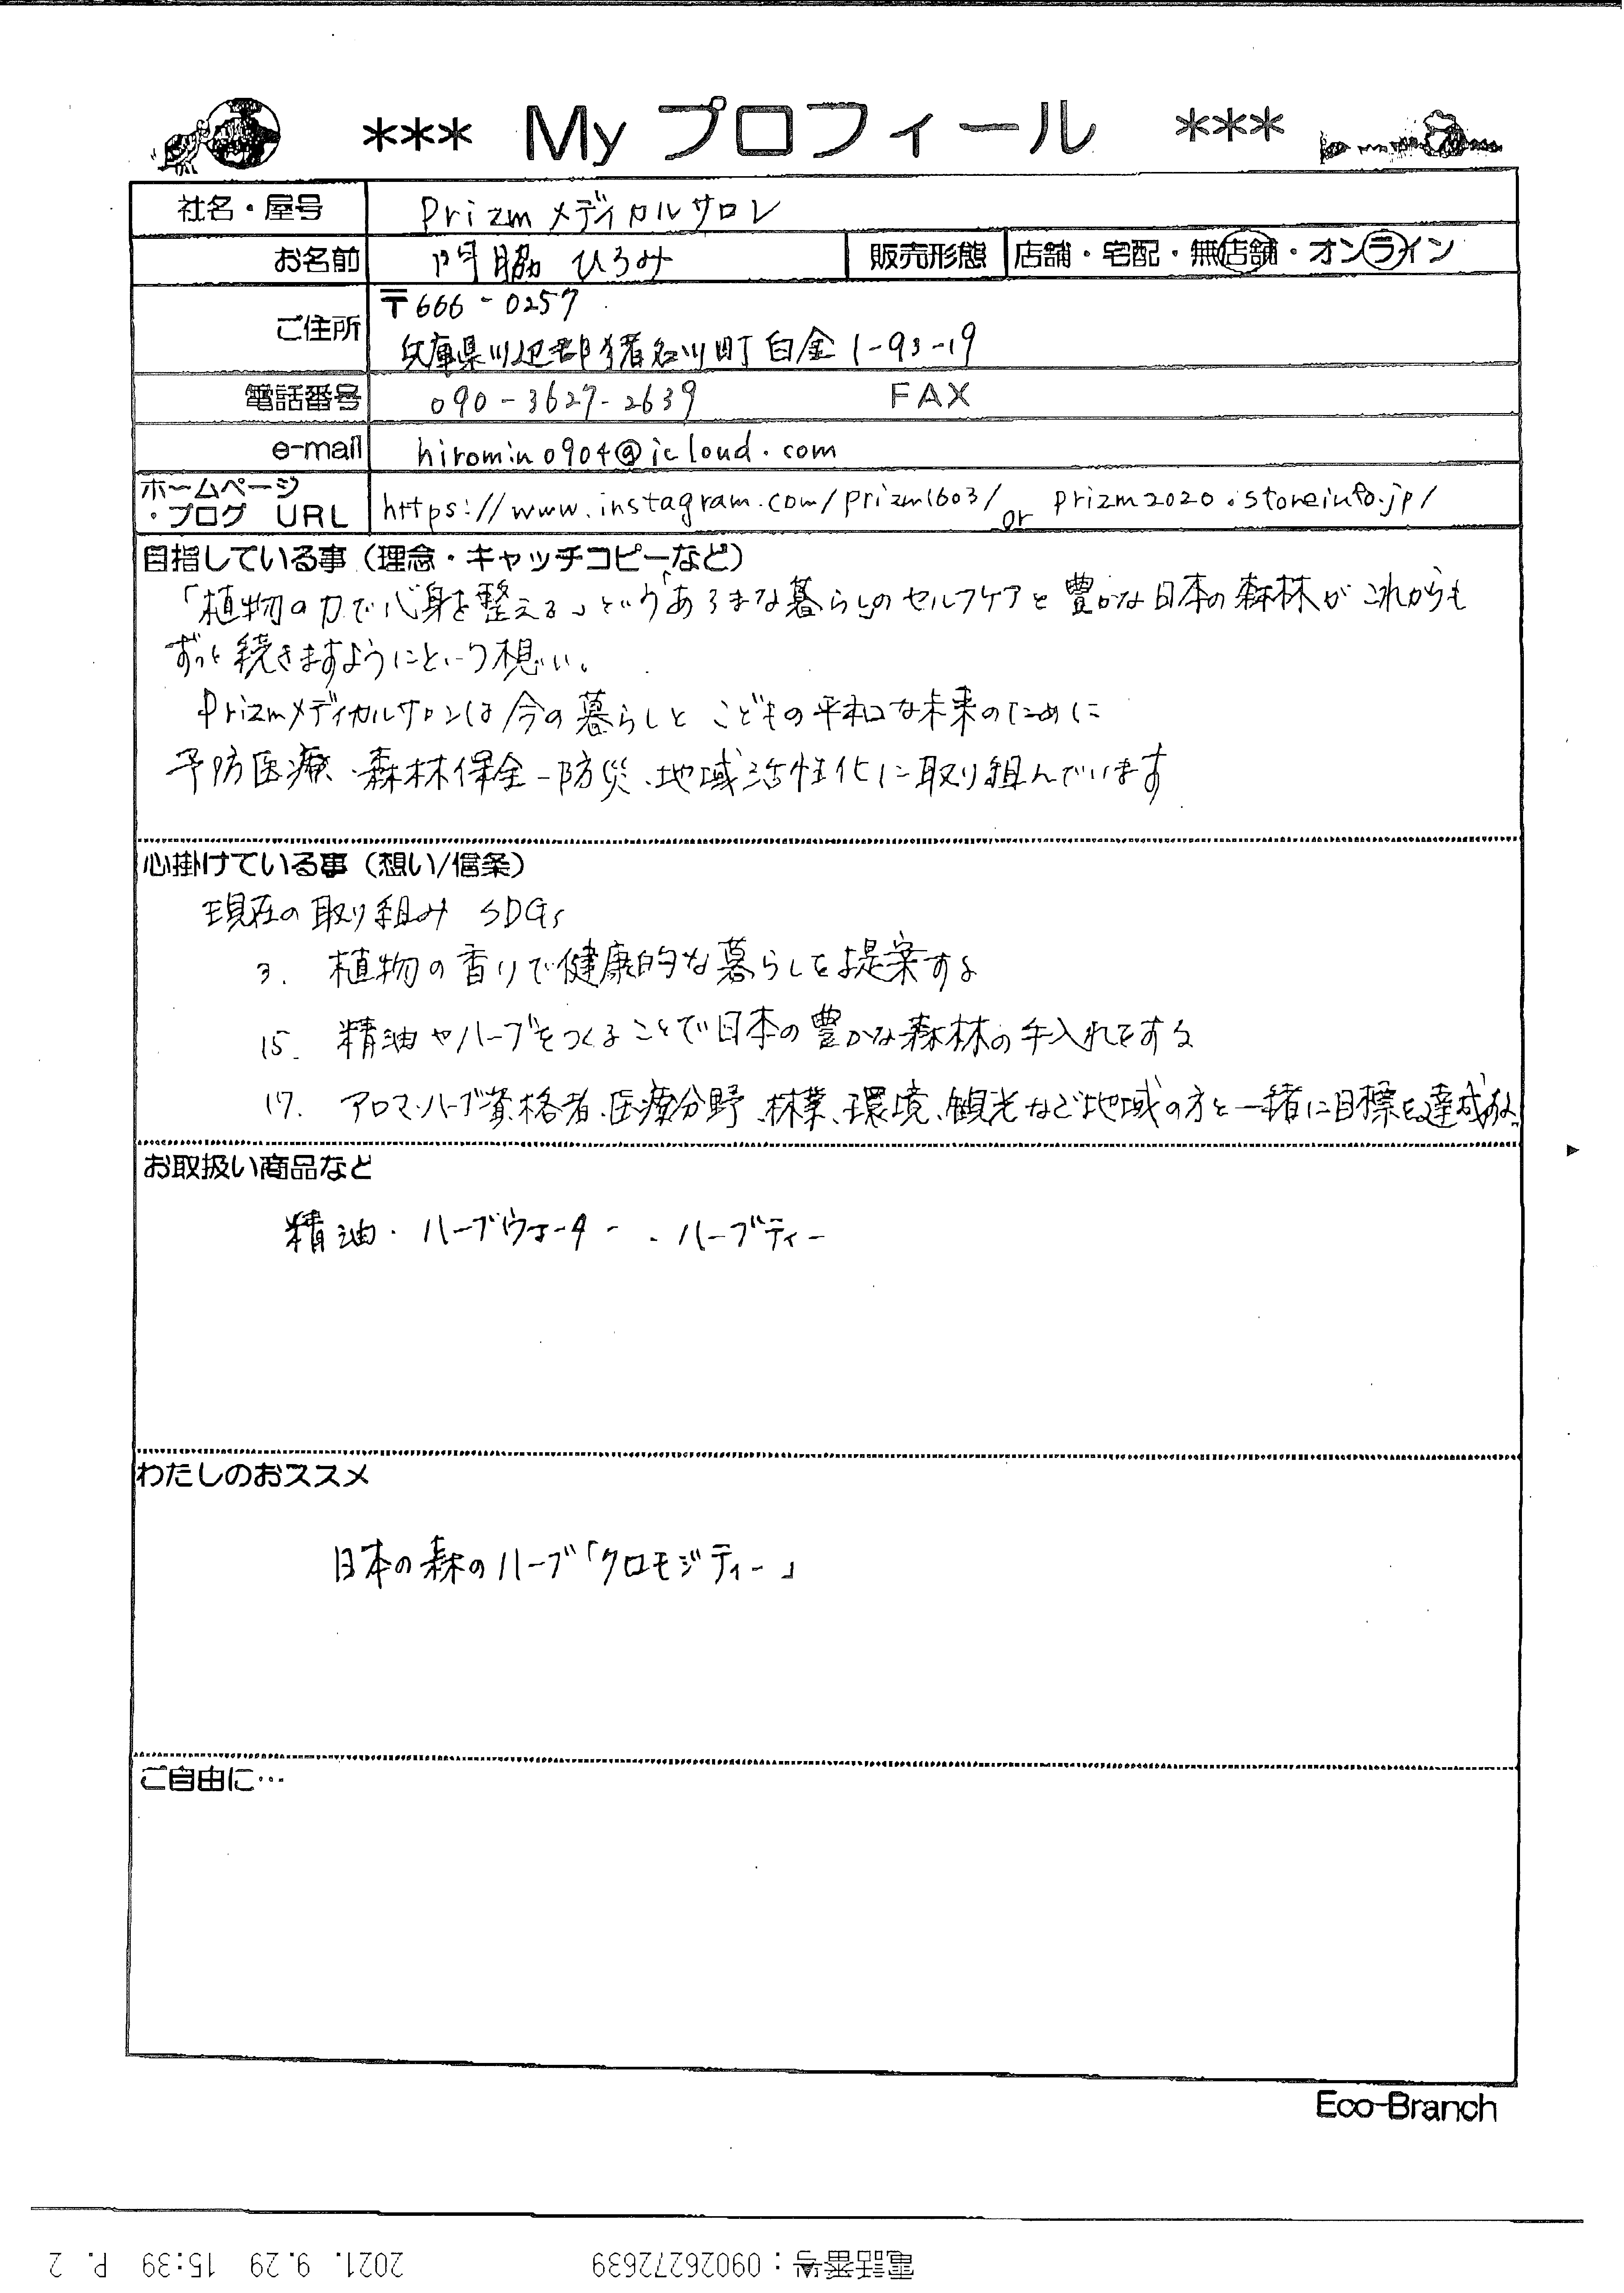 *** My プロフィール ***
社名・屋号 Prizm メディカルサロン
お名前 門脇 ひろみ 販売形態 店舗・宅配・無店舗・オンライン
ご住所 〒666-0257
兵庫県川辺郡猪名川町白金1-93-19
電話番号 090-3627-2639 FAX
e-mail hiromin0904@icloud.com
ホームページ・ブログ URL https://www.instagram.com/prizm1603/ or prizm2020.storeinfo.jp/
目指している事(理念・キャッチコピーなど)
「植物の力で心身を整える」という「あろまな暮らし」のセルフケアと豊かな日本の森林がこれからも
ずっと続きますようにという想い。
Prizmメディカルサロンは今の暮らしとこどもの平和な未来のために
予防医療・森林保全-防災・地域活性化に取り組んでいます
心掛けている事(想い/信条)
現在の取り組み SDGs
3. 植物の香りで健康的な暮らしを提案する
15. 精油やハーブをつくることで日本の豊かな森林の手入れをする
17. アロマ・ハーブ資格者、医療分野、林業、環境、観光など地域の方と一緒に目標を達成する。
お取扱い商品など
精油・ハーブウォーター・ハーブティー
わたしのおススメ
日本の森のハーブ「クロモジティー」
ご自由に…
Eco-Branch
電話番号：09026272639 2021. 9.29 15:39 P. 2